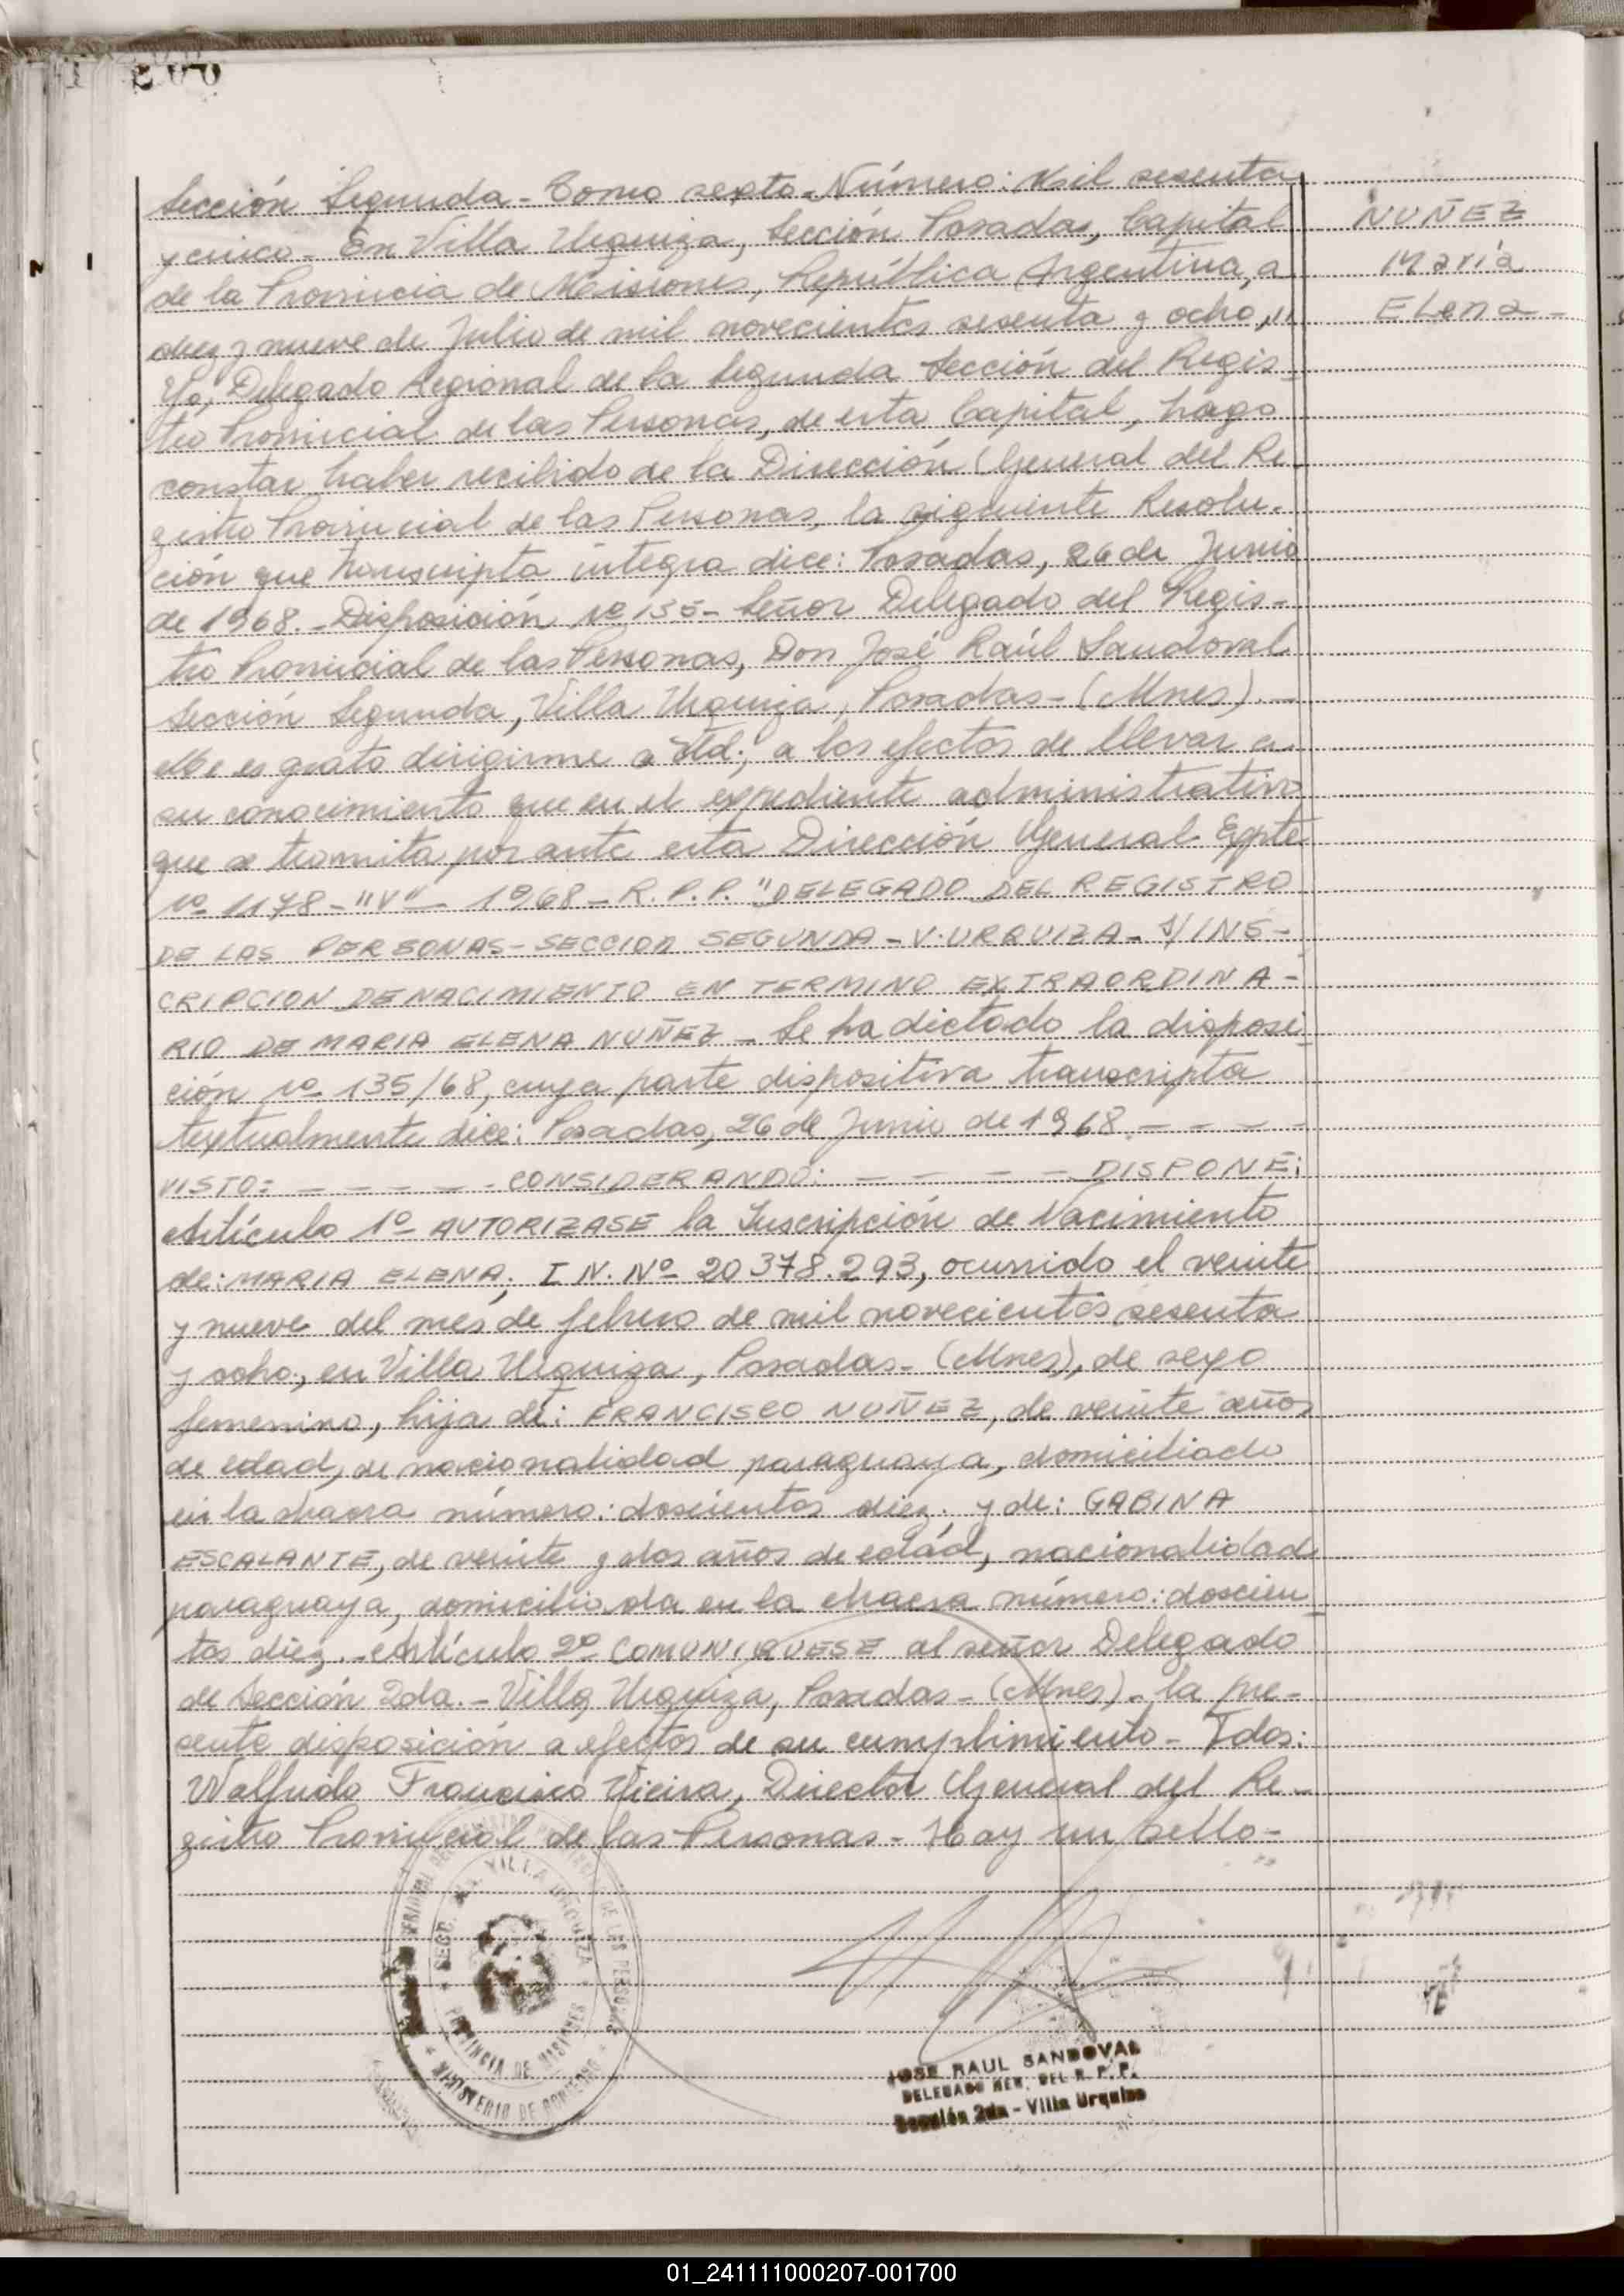 200
Sección Segunda - Tomo sexto - Número: Mil sesenta
y cinco - En Villa Urquiza, Sección Posadas, Capital
de la Provincia de Misiones, República Argentina, a
diez y nueve de Julio de mil novecientos sesenta y ocho,,,
Yo, Delegado Regional de la Segunda Sección del Regis-
tro Provincial de las Personas, de esta Capital, hago
constar haber recibido de la Dirección General del Re-
gistro Provincial de las Personas, la siguiente Resolu-
ción que transcripta íntegra dice: Posadas, 26 de Junio
de 1968. - Disposición Nº 135 - Señor Delegado del Regis-
tro Provincial de las Personas, Don José Raúl Sandoval
Sección Segunda, Villa Urquiza, Posadas - (Mnes). -
Me es grato dirigirme a Ud; a los efectos de llevar a
su conocimiento que en el expediente administrativo
que se tramita por ante esta Dirección General Expte
Nº 1178 - "V" - 1968 - R.P.P. "DELEGADO DEL REGISTRO
DE LAS PERSONAS - SECCION SEGUNDA - V. URQUIZA - S/INS-
CRIPCION DE NACIMIENTO EN TERMINO EXTRAORDINA-
RIO DE MARIA ELENA NUÑEZ - Se ha dictado la disposi-
ción Nº 135/68, cuya parte dispositiva transcripta
textualmente dice: Posadas, 26 de Junio de 1968. - - - -
VISTO: - - - - - - CONSIDERANDO: - - - - - DISPONE:
Artículo 1º AUTORIZASE la Inscripción de Nacimiento
de: MARIA ELENA; I N. Nº 20378.293, ocurrido el veinte
y nueve del mes de febrero de mil novecientos sesenta
y ocho, en Villa Urquiza, Posadas - (Mnes), de sexo
femenino, hija de: FRANCISCO NUÑEZ, de veinte años
de edad, de nacionalidad paraguaya, domiciliado
en la chacra número: doscientos diez. y de: GABINA
ESCALANTE, de veinte y dos años de edad, nacionalidad
paraguaya, domiciliada en la chacra número: doscien-
tos diez. - Artículo 2º COMUNIQUESE al señor Delegado
de Sección 2da. - Villa Urquiza, Posadas - (Mnes) - la pre-
sente disposición a efectos de su cumplimiento - Fdos:
Walfrido Francisco Vieira, Director General del Re-
gistro Provincial de las Personas - Hay un sello -
NUÑEZ
María
Elena -
SECC. VILLA URQUIZA
PROVINCIA DE MISIONES
MINISTERIO DE GOBIERNO
JOSE RAUL SANDOVAL
DELEGADO REG. DEL R. P. P.
Sección 2da - Villa Urquiza
01_241111000207-001700